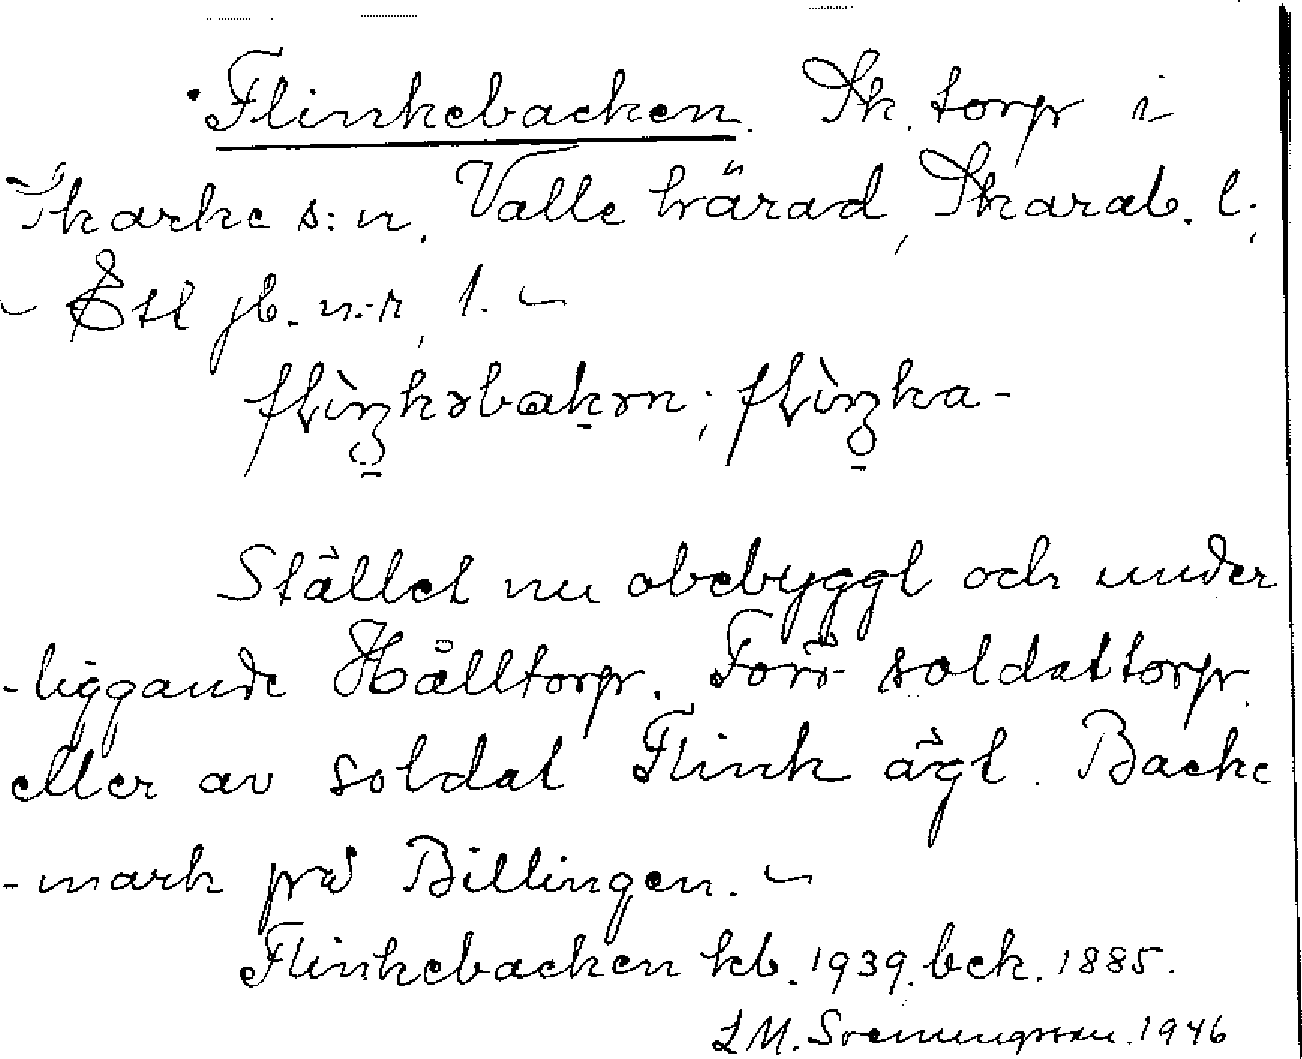 Flinkebacken. Sk. torp i
Skarke s:n, Valle härad, Skarab. l.,
- Ett jb. n:r, 1. -
Stället nu obebyggt och under
-liggande Hålltorp. Förr soldattorp
eller av soldat Flink ägt. Backe
-mark på Billingen. -
Flinkebacken kb. 1939. bck. 1885.
L M. Svenungsson. 1946